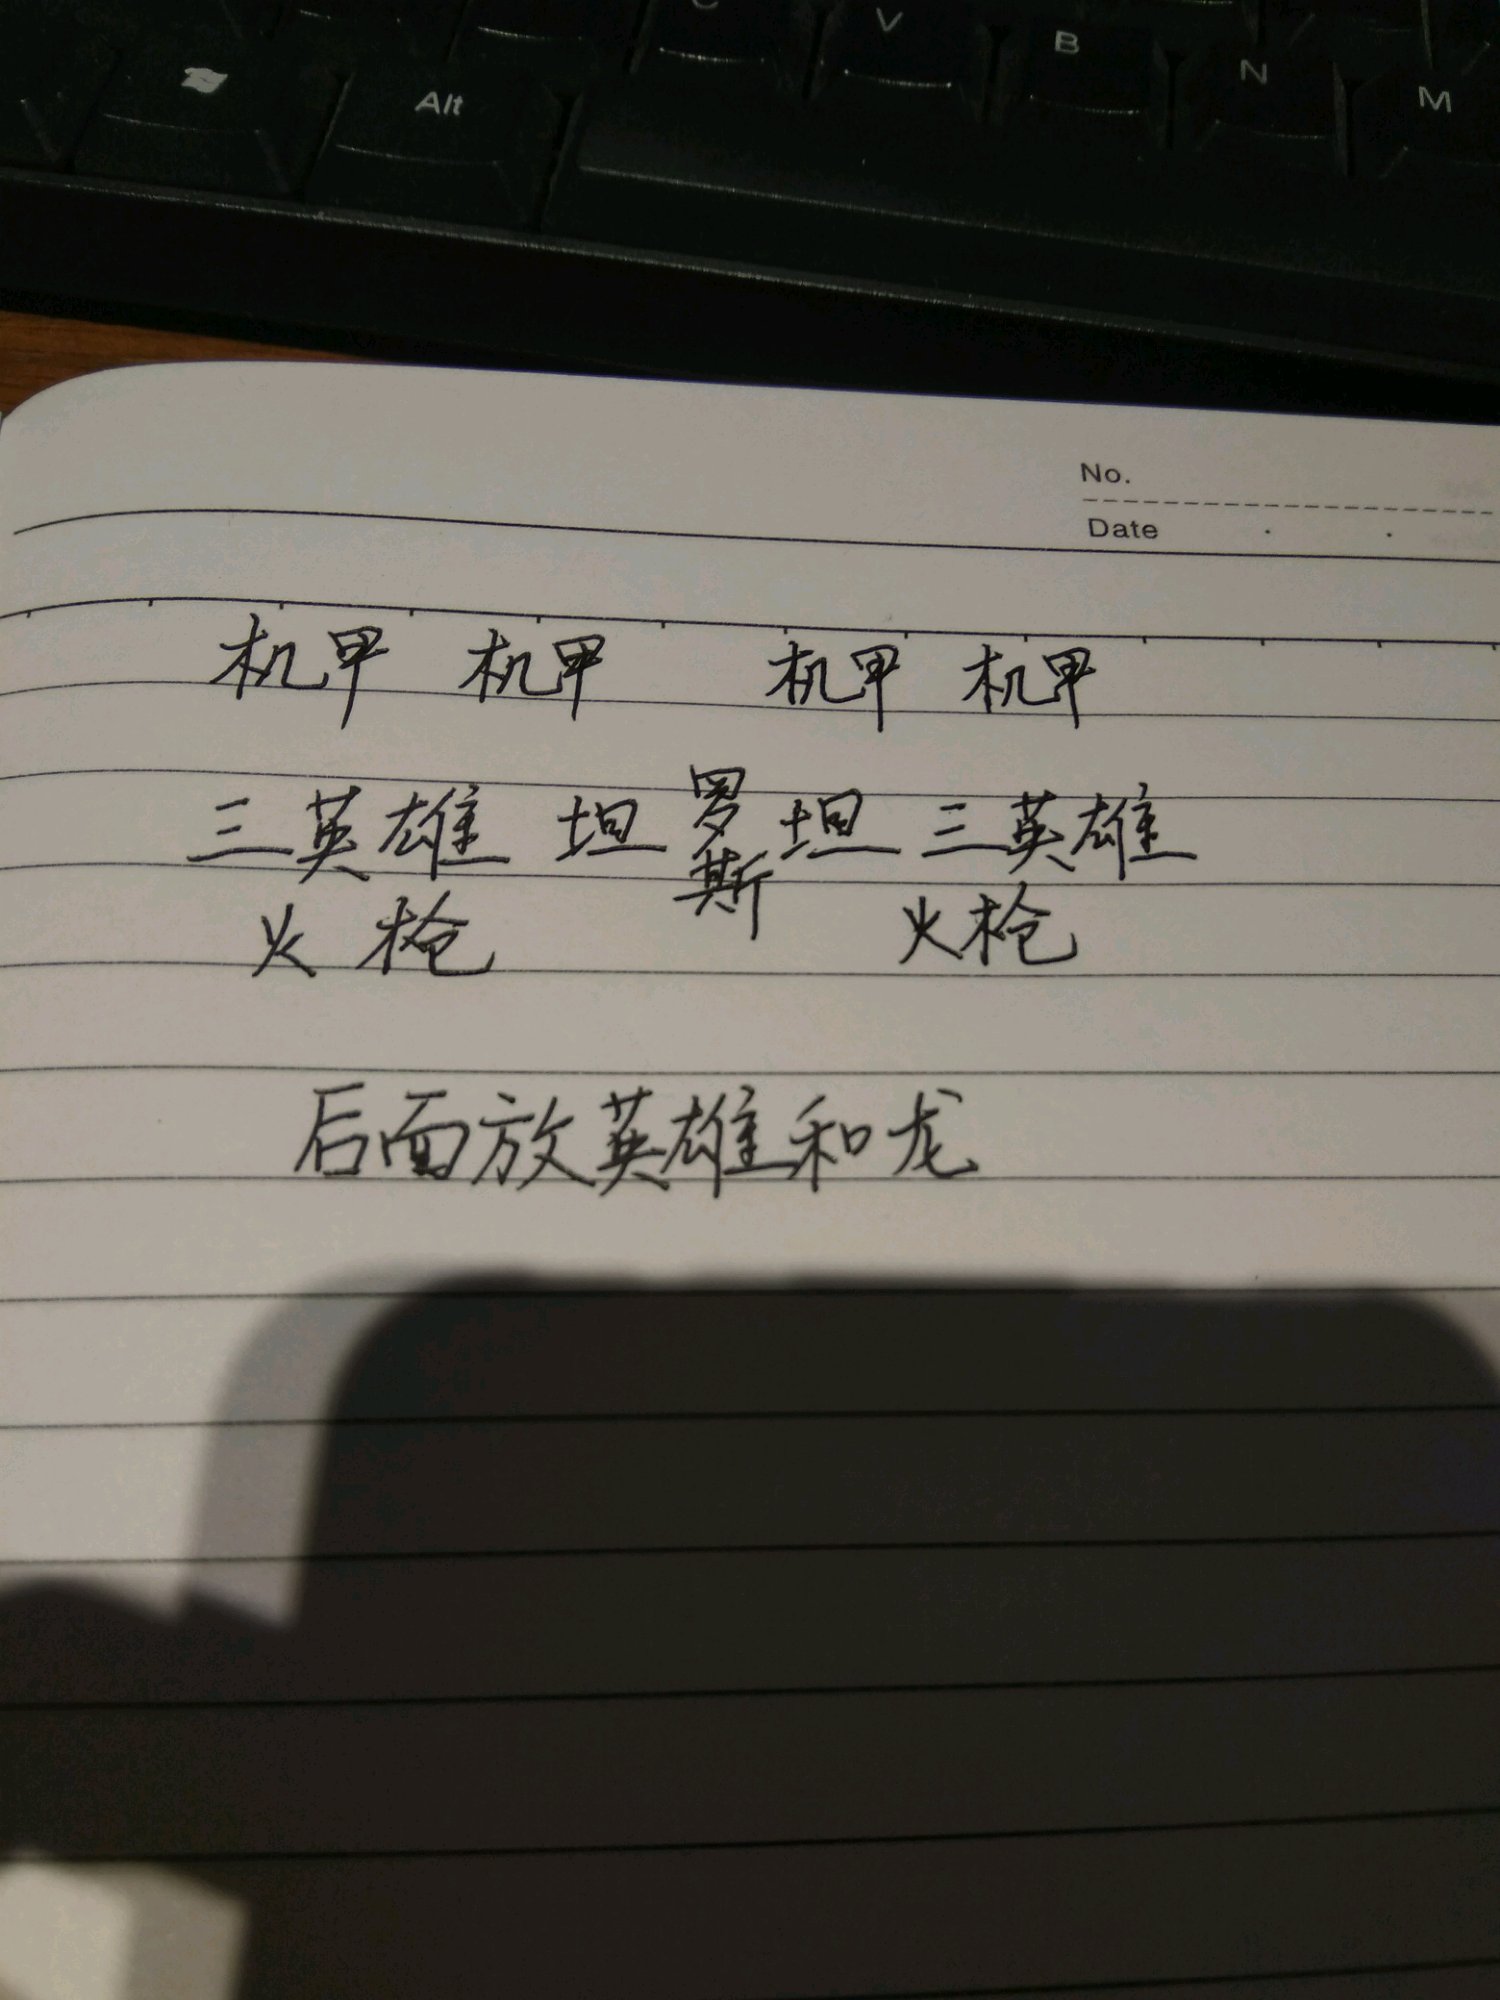 V B N M
Alt
No.
Date
机甲 机甲 机甲 机甲
三英雄 坦 罗斯 坦 三英雄
火枪 火枪
后面放英雄和龙